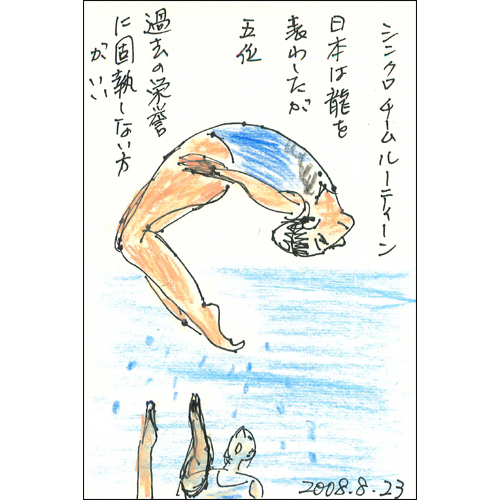 シンクロ チームルーティーン
日本は龍を
表わしたが
五位
過去の栄誉
に固執しない方
がいい
2008.8.23